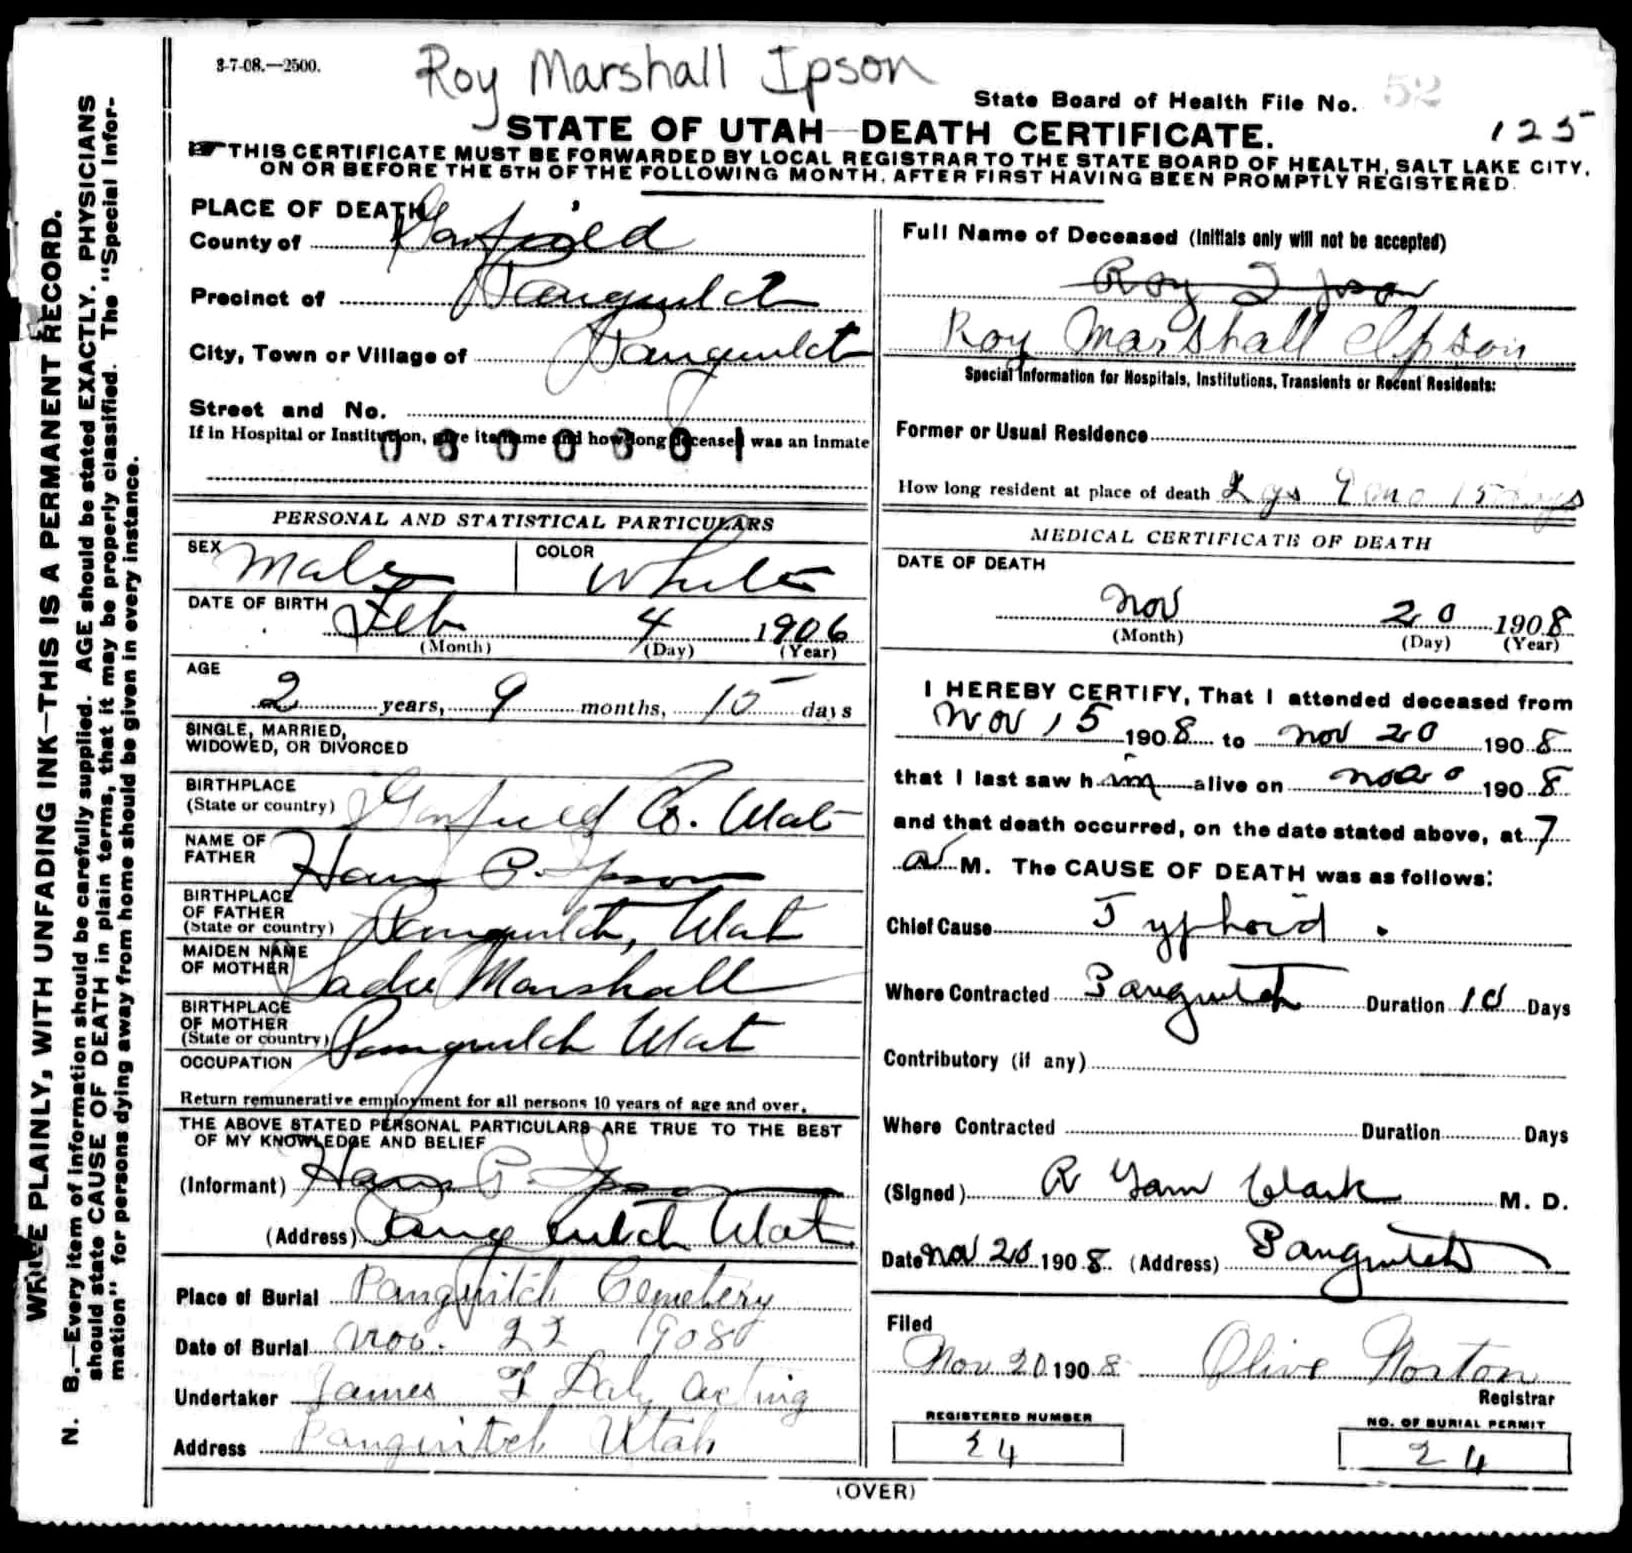 3-7-08.—2500.
Roy Marshall Ipson
State Board of Health File No. 52
125
STATE OF UTAH—DEATH CERTIFICATE.
THIS CERTIFICATE MUST BE FORWARDED BY LOCAL REGISTRAR TO THE STATE BOARD OF HEALTH, SALT LAKE CITY,
ON OR BEFORE THE 5TH OF THE FOLLOWING MONTH, AFTER FIRST HAVING BEEN PROMPTLY REGISTERED.
WRITE PLAINLY, WITH UNFADING INK—THIS IS A PERMANENT RECORD.
N. B.—Every item of information should be carefully supplied. AGE should be stated EXACTLY. PHYSICIANS
should state CAUSE OF DEATH in plain terms, that it may be properly classified. The "Special Infor-
mation" for persons dying away from home should be given in every instance.
PLACE OF DEATH
County of Garfield
Precinct of Panguitch
City, Town or Village of Panguitch
Street and No.
If in Hospital or Institution, give its name and how long deceased was an inmate
PERSONAL AND STATISTICAL PARTICULARS
SEX Male COLOR White
DATE OF BIRTH Feb 4 1906
(Month) (Day) (Year)
AGE
2 years, 9 months, 15 days
SINGLE, MARRIED,
WIDOWED, OR DIVORCED
BIRTHPLACE
(State or country) Garfield Co. Utah
NAME OF
FATHER Hans P. Ipson
BIRTHPLACE
OF FATHER
(State or country) Panguitch, Utah
MAIDEN NAME
OF MOTHER Sadie Marshall
BIRTHPLACE
OF MOTHER
(State or country) Panguitch Utah
OCCUPATION
Return remunerative employment for all persons 10 years of age and over.
THE ABOVE STATED PERSONAL PARTICULARS ARE TRUE TO THE BEST
OF MY KNOWLEDGE AND BELIEF
(Informant) Hans P. Ipson
(Address) Panguitch Utah
Place of Burial Panguitch Cemetery
Date of Burial Nov. 22 1908
Undertaker James T Daly acting
Address Panguitch Utah
Full Name of Deceased (Initials only will not be accepted)
Roy Ipson
Roy Marshall Ipson
Special Information for Hospitals, Institutions, Transients or Recent Residents:
Former or Usual Residence
How long resident at place of death 2 ys 9 mo 15 days
MEDICAL CERTIFICATE OF DEATH
DATE OF DEATH
Nov 20 1908
(Month) (Day) (Year)
I HEREBY CERTIFY, That I attended deceased from
Nov 15 1908 to Nov 20 1908
that I last saw him alive on 1908
and that death occurred, on the date stated above, at 7
a M. The CAUSE OF DEATH was as follows:
Chief Cause Typhoid.
Where Contracted Panguitch Duration 10 Days
Contributory (if any)
Where Contracted Duration Days
(Signed) R Clark M. D.
Date Nov 20 1908 (Address) Panguitch
Filed
Nov 20 1908 Olive Norton
Registrar
REGISTERED NUMBER
24
NO. OF BURIAL PERMIT
24
(OVER)